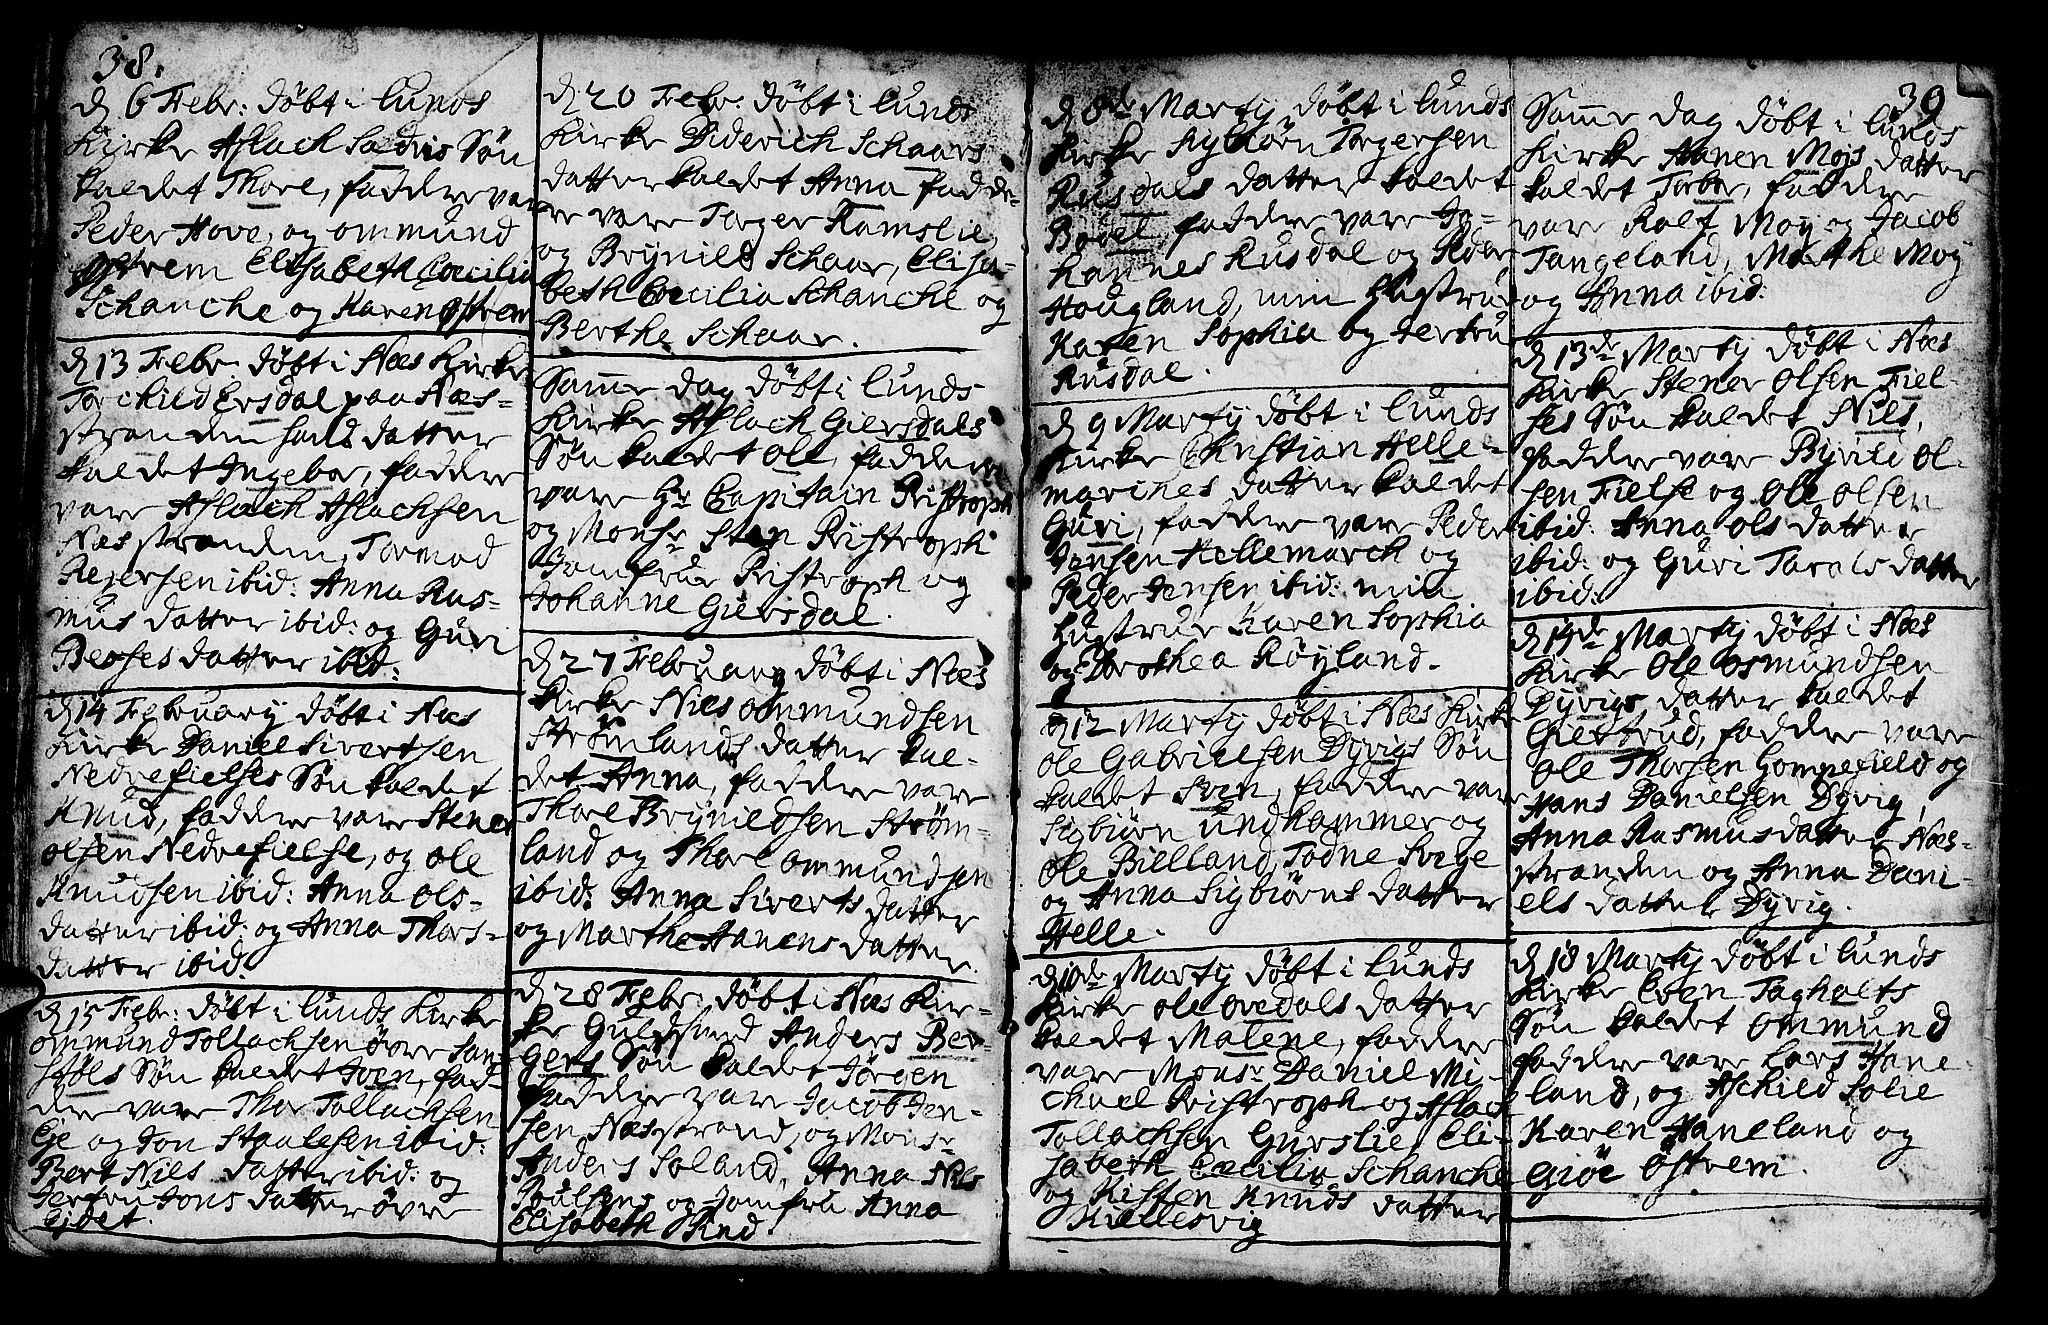 38.
d 6 Febr: døbt i Lunds
Kirke Aslach Saldris Søn
kaldet Thore, faddre var
Peder Hove, og Ommund
Østrem Elisabeth Cœcilia
Schanche og Karen Østrem
d 13 Febr: døbt i Næs Kirke
Torchild Ersdal paa Næs-
stranden hans datter
kaldet Ingebor, faddre
vare Aslach Aslachsen
Næsstranden, Tormod
Rejersen ibid: Anna Ras-
mus datter ibid: og Guri
datter ibid:
d 14 Februarij døbt i Næs
Kirke Daniel Sivertsen
Nedrefielses Søn kaldet
Knud, faddre vare Stener
Olsen Nedrefielse, og Ole
Knudsen ibid: Anna Ols-
datter ibid: og Anna Thors-
datter ibid:
d 15 Febr: døbt i Lunds Kirke
Ommund Tollachsen øvre
Søn kaldet Sven, fad-
dre vare Thor Tollachsen
Eje og Jon Staalesen ibid:
Bert Niels datter ibid: og
Jertru Jons datter øvre
Ejdet.
d 20 Febr: døbt i Lunds
Kirke Diderich Schaars
datter kaldet Anna fadde-
re vare Torger Ramslie,
og Brynild Schaar, Elisa-
beth Cœcilia Schanche og
Berthe Schaar.
Samme dag døbt i Lunds
Kirke Aslach Giersdals
Søn kaldet Ole, faddere
vare Hr Capitain Ristroph
og Monsr Sten Ristroph
Jomfrue Ristroph og
Johanne Giersdal.
d 27 Februarij døbt i Næs
Kirke Niels Ommundsen
Strømlands datter kal-
det Anna, faddre vare
Thore Brynildsen Strøm-
land og Thore Ommundsen
ibid: Anna Siverts datter
og Marthe Hanens datter.
d 28 Febr: døbt i Næs Kir-
ke Guldsmed Anders Ber-
gers Søn kaldet Jørgen
faddre vare Jacob Jen-
sen Næsstrand, og Monsr
Anders Soland, Anna Nils
Poulsens og Jomfru Anna
Elisabeth Kind.
d 8de Martij døbt i Lunds
Kirke Sybiørn Torgersen
Rusdals datter kaldet
Bodel faddre vare Jo-
hannes Rusdal og Peder
Hougland, min Hustrue
Karen Sophia og Jertru
Rusdal.
d 9 Martij døbt i Lunds
Kirke Christian Helle-
marches datter kaldet
Guri, faddre vare Peder
Jensen Hellemarch og
Peder Jensen ibid: min
Hustrue Karen Sophia
og Dorothea Røyland.
d 12 Martij døbt i Næs Kirke
Ole Gabrielsen Dyvigs Søn
kaldet Sven, faddre vare
Sigbiørn Undhammer og
Ole Bielland, Todne Svege
og Anna Sigbiørns datter
Helle.
d 10de Martij døbt i Lunds
Kirke Ole Ovedals datter
kaldet Malene, faddre
vare Monsr Daniel Mi-
chael Ristroph og Aslach
Tollachsen Gurslie, Eli-
sabeth Cæcilia Schanche
og Kisten Knuds datter
Kiellesvig
39
Samme dag døbt i Lunds
Kirke Hanen Mojs datter
kaldet Torbor, faddre
vare Ralf Moy og Jacob
Tangeland, Marthe Moy
og Anna ibid:
d 13de Martij døbt i Næs
Kirke Stener Olsen Fiel-
ses Søn kaldet Niels,
faddre vare Ol-
sen Fielse og Ole Olsen
ibid: Anna Ols datter
ibid: og Guri Tarals datter
ibid:
d 14de Martij døbt i Næs
Kirke Ole Osmundsen
Dyvigs datter kaldet
Giertrud, faddre vare
Ole Thorsen Gompefield og
Hans Danielsen Dyvig,
Anna Rasmusdatter Næs-
stranden og Anna Dani-
els datter Dyvig.
d 18 Martij døbt i Lunds
Kirke Even Tagholts
Søn kaldet Ommund
faddre vare Lars Hane-
land, og Aschild Solie
Karen Haneland og
Giøe Østrem.